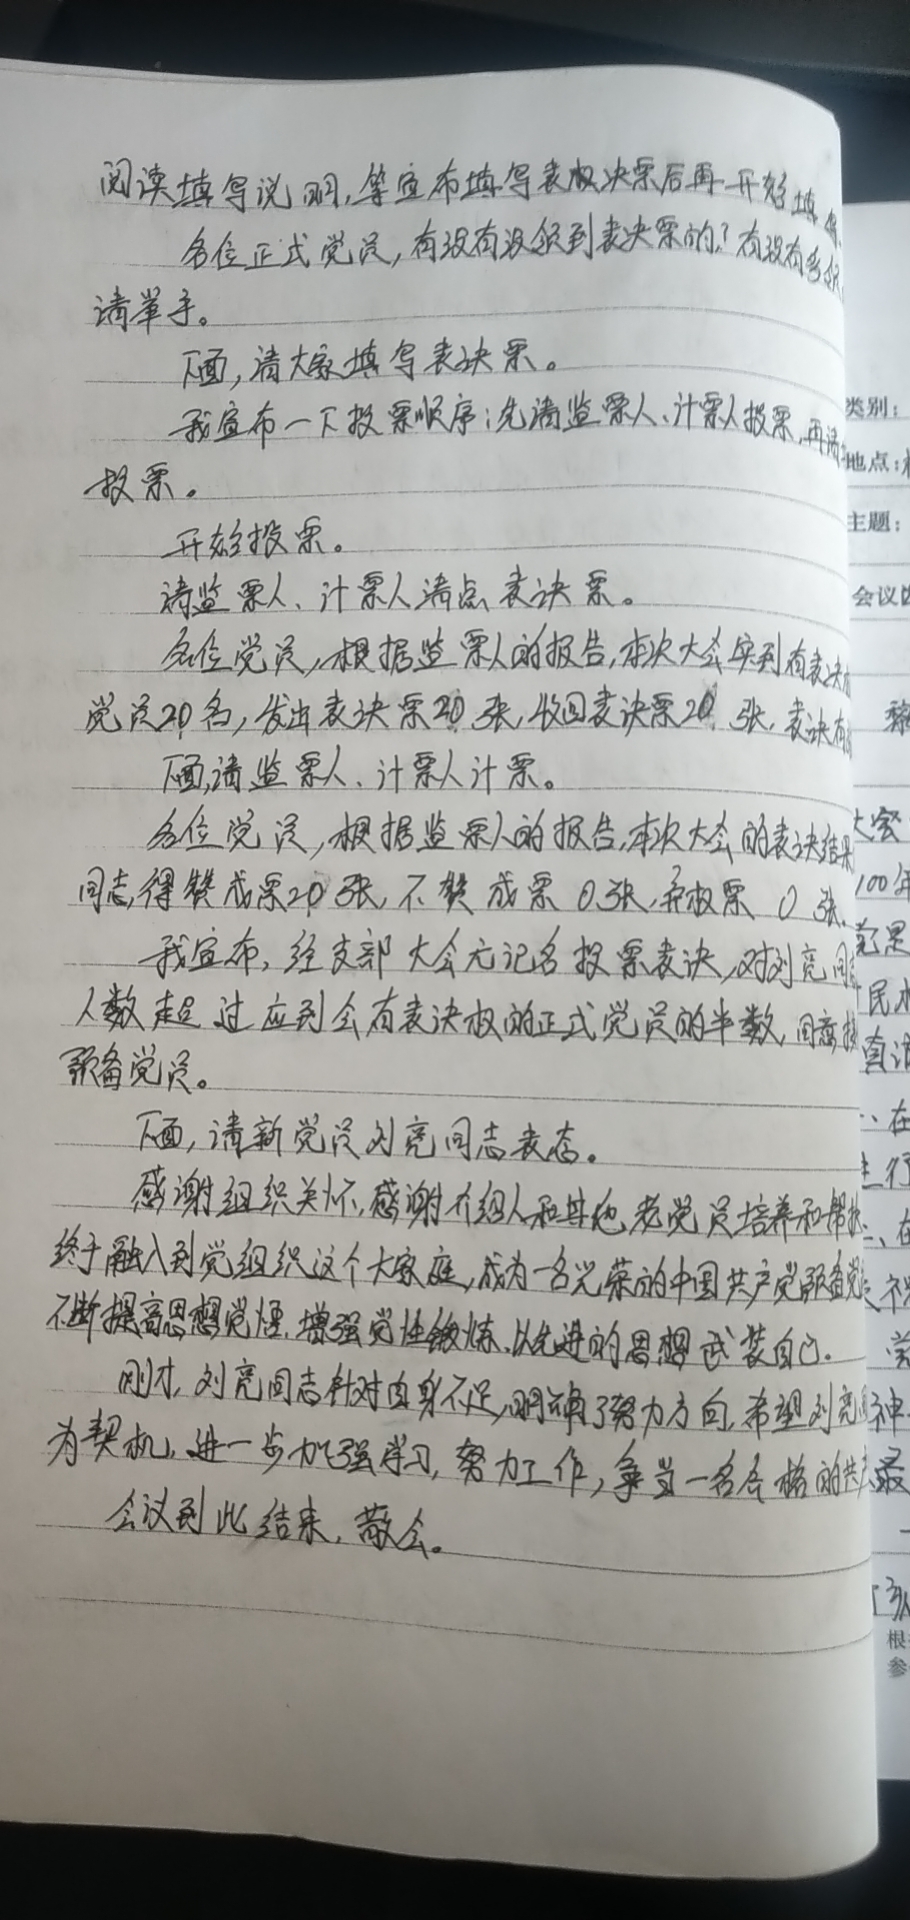 阅读填写说明,等宣布填写表权决票后再开始填写
各位正式党员,有没有没领到表决票的?有没有多领
请举手。
下面,请大家填写表决票。
我宣布一下投票顺序:先请监票人、计票人投票,再请
投票。
开始投票。
请监票人、计票人清点表决票。
各位党员,根据监票人的报告,本次大会实到有表决权
党员20名,发出表决票20张,收回表决票20张,表决有
下面,请监票人、计票人计票。
各位党员,根据监票人的报告,本次大会的表决结果
同志,得赞成票20张,不赞成票0张,弃权票0张.
我宣布,经支部大会无记名投票表决,对刘亮同
人数超过应到会有表决权的正式党员的半数,同意接
预备党员。
下面,请新党员刘亮同志表态。
感谢组织关怀,感谢介绍人和其他老党员培养和帮
终于融入到党组织这个大家庭,成为一名光荣的中国共产党预备党
不断提高思想觉悟,增强党性锻炼,以先进的思想武装自己.
刚才,刘亮同志针对自身不足,明确了努力方向,希望刘亮
为契机,进一步加强学习,努力工作,争当一名合格的共
会议到此结束,散会。
类别:
地点:
主题:
会议
大会
100年
党是
民
一、在
神
最
根
参